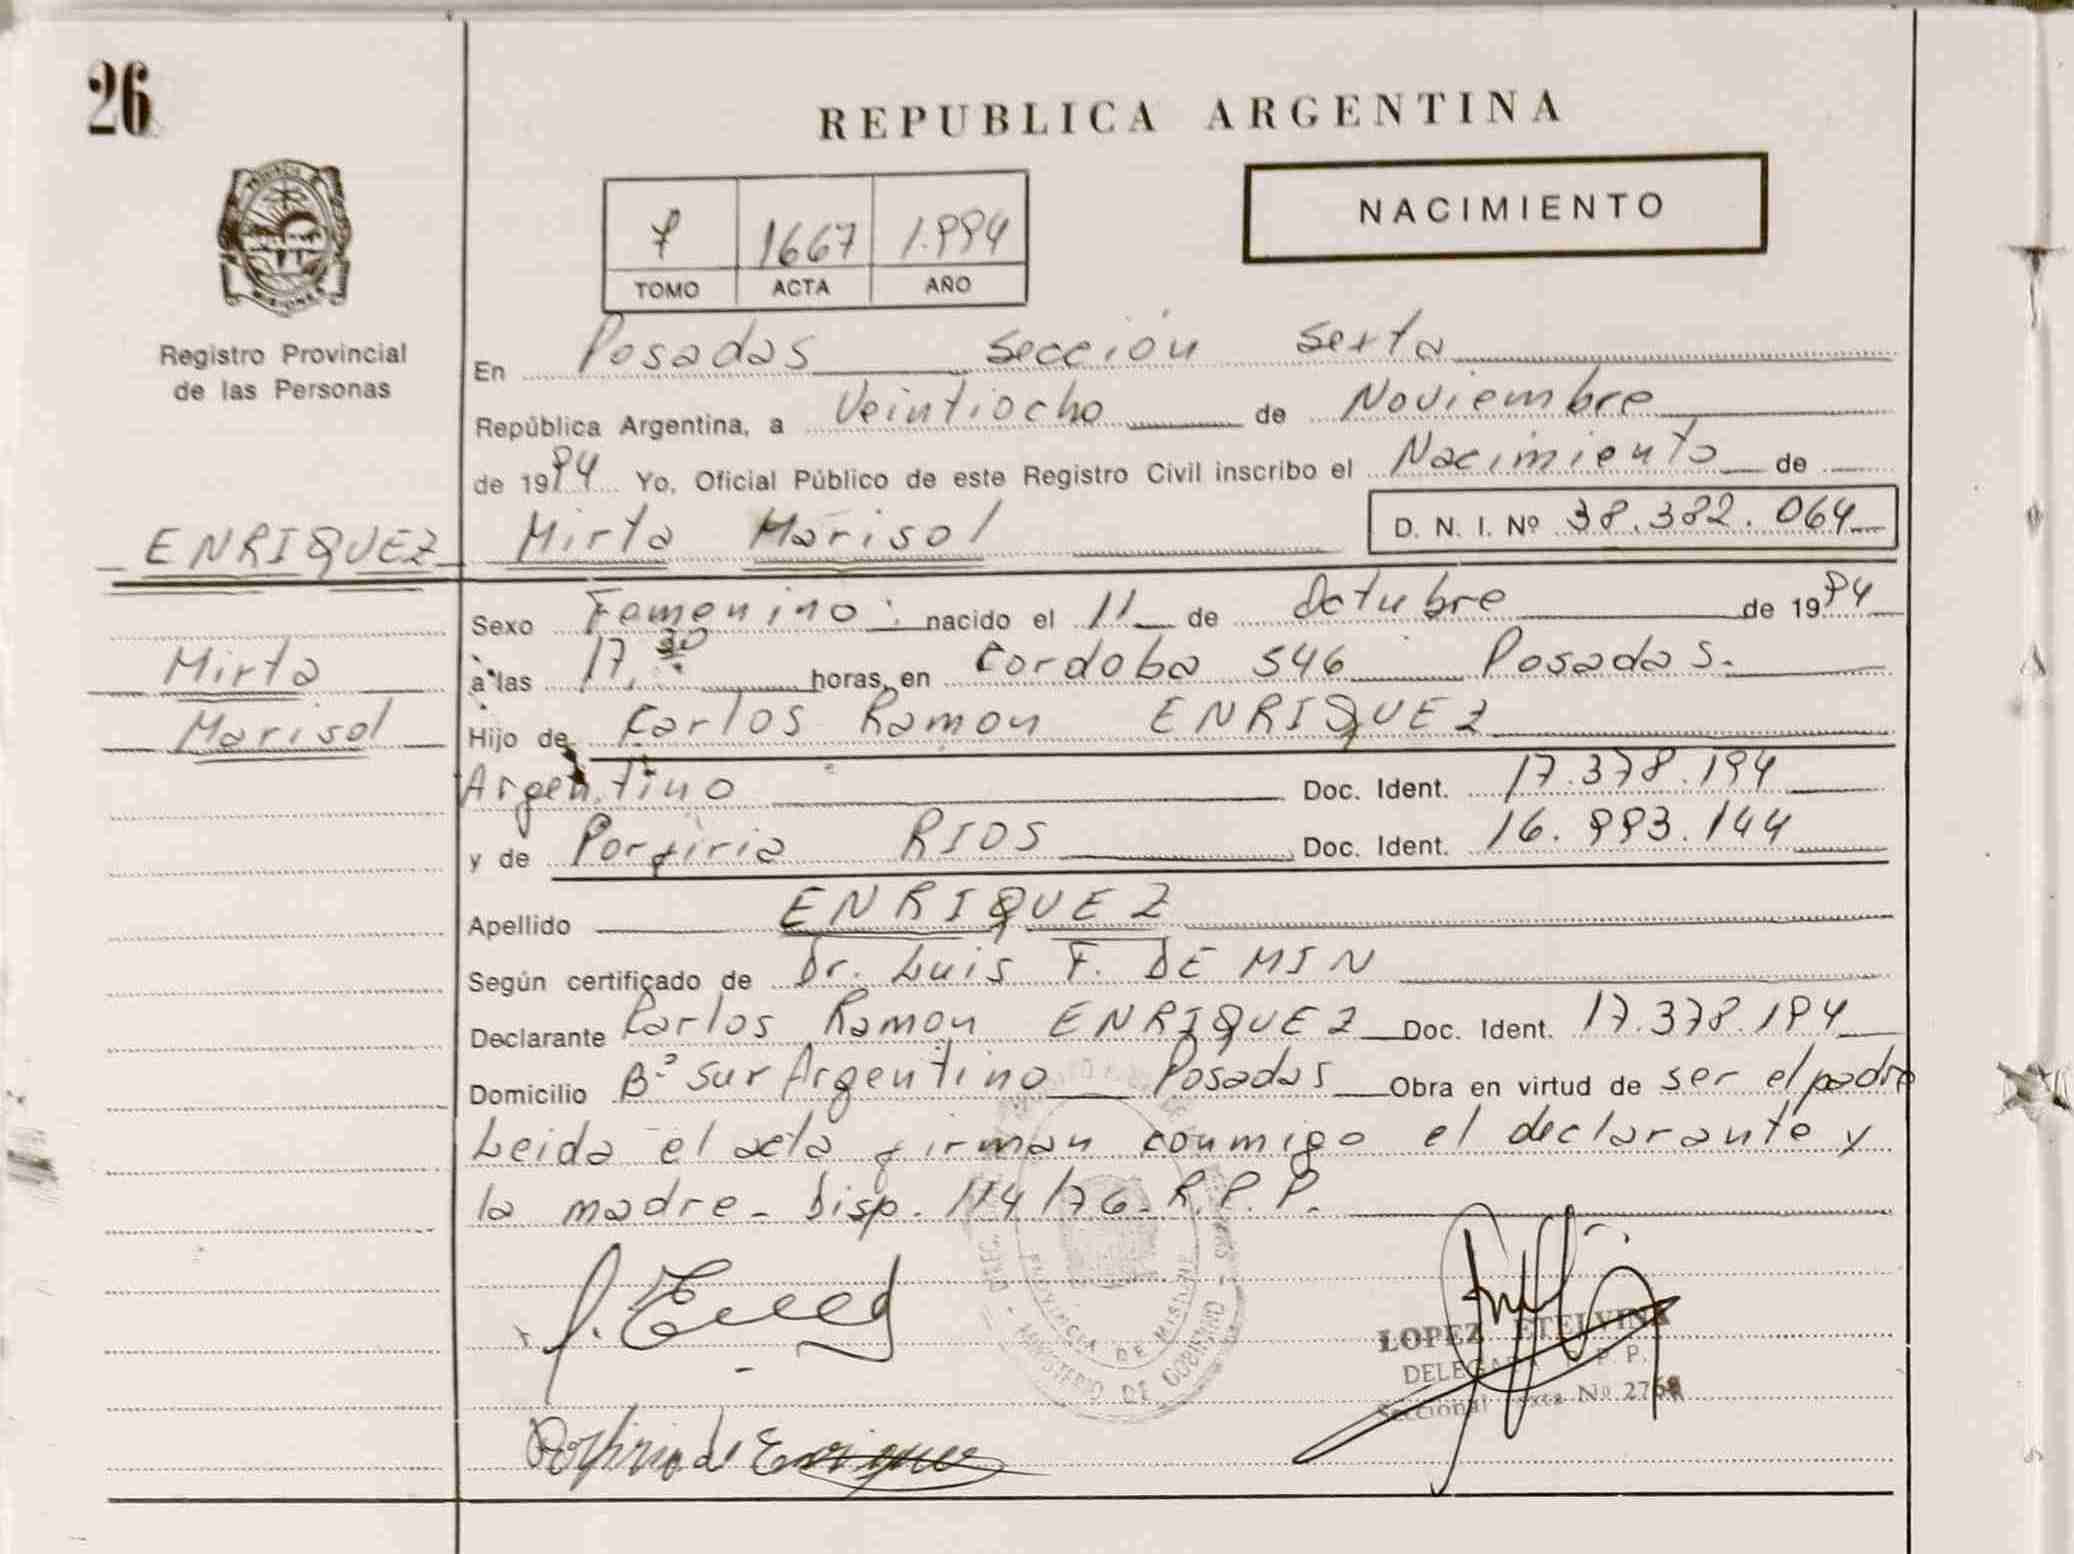 26
REPUBLICA ARGENTINA
NACIMIENTO
7 1667 1.994
TOMO ACTA AÑO
Registro Provincial
de las Personas
En Posadas sección sexta
República Argentina, a Veintiocho de Noviembre
de 1994 Yo, Oficial Público de este Registro Civil inscribo el Nacimiento de
ENRIQUEZ Mirta Marisol D. N. I. Nº 38.382.064
Sexo Femenino; nacido el 11 de Octubre de 1994
Mirta
a las 17,30 horas, en Cordoba 546 Posadas.
Marisol
Hijo de Carlos Ramon ENRIQUEZ
Argentino Doc. Ident. 17.378.194
y de Porfiria RIOS Doc. Ident. 16.993.144
Apellido ENRIQUEZ
Según certificado de Dr. Luis F. DE MIN
Declarante Carlos Ramon ENRIQUEZ Doc. Ident. 17.378.194
Domicilio Bº Sur Argentino Posadas Obra en virtud de ser el padre
Leida el acta firman conmigo el declarante y
la madre - Disp. 114/76 - R.P.P.
PROVINCIA DE MISIONES
MINISTERIO DE GOBIERNO
LOPEZ ETELVINA
DELEGADA P. P.
Seccional No 2768
Porfiria de Enriquez